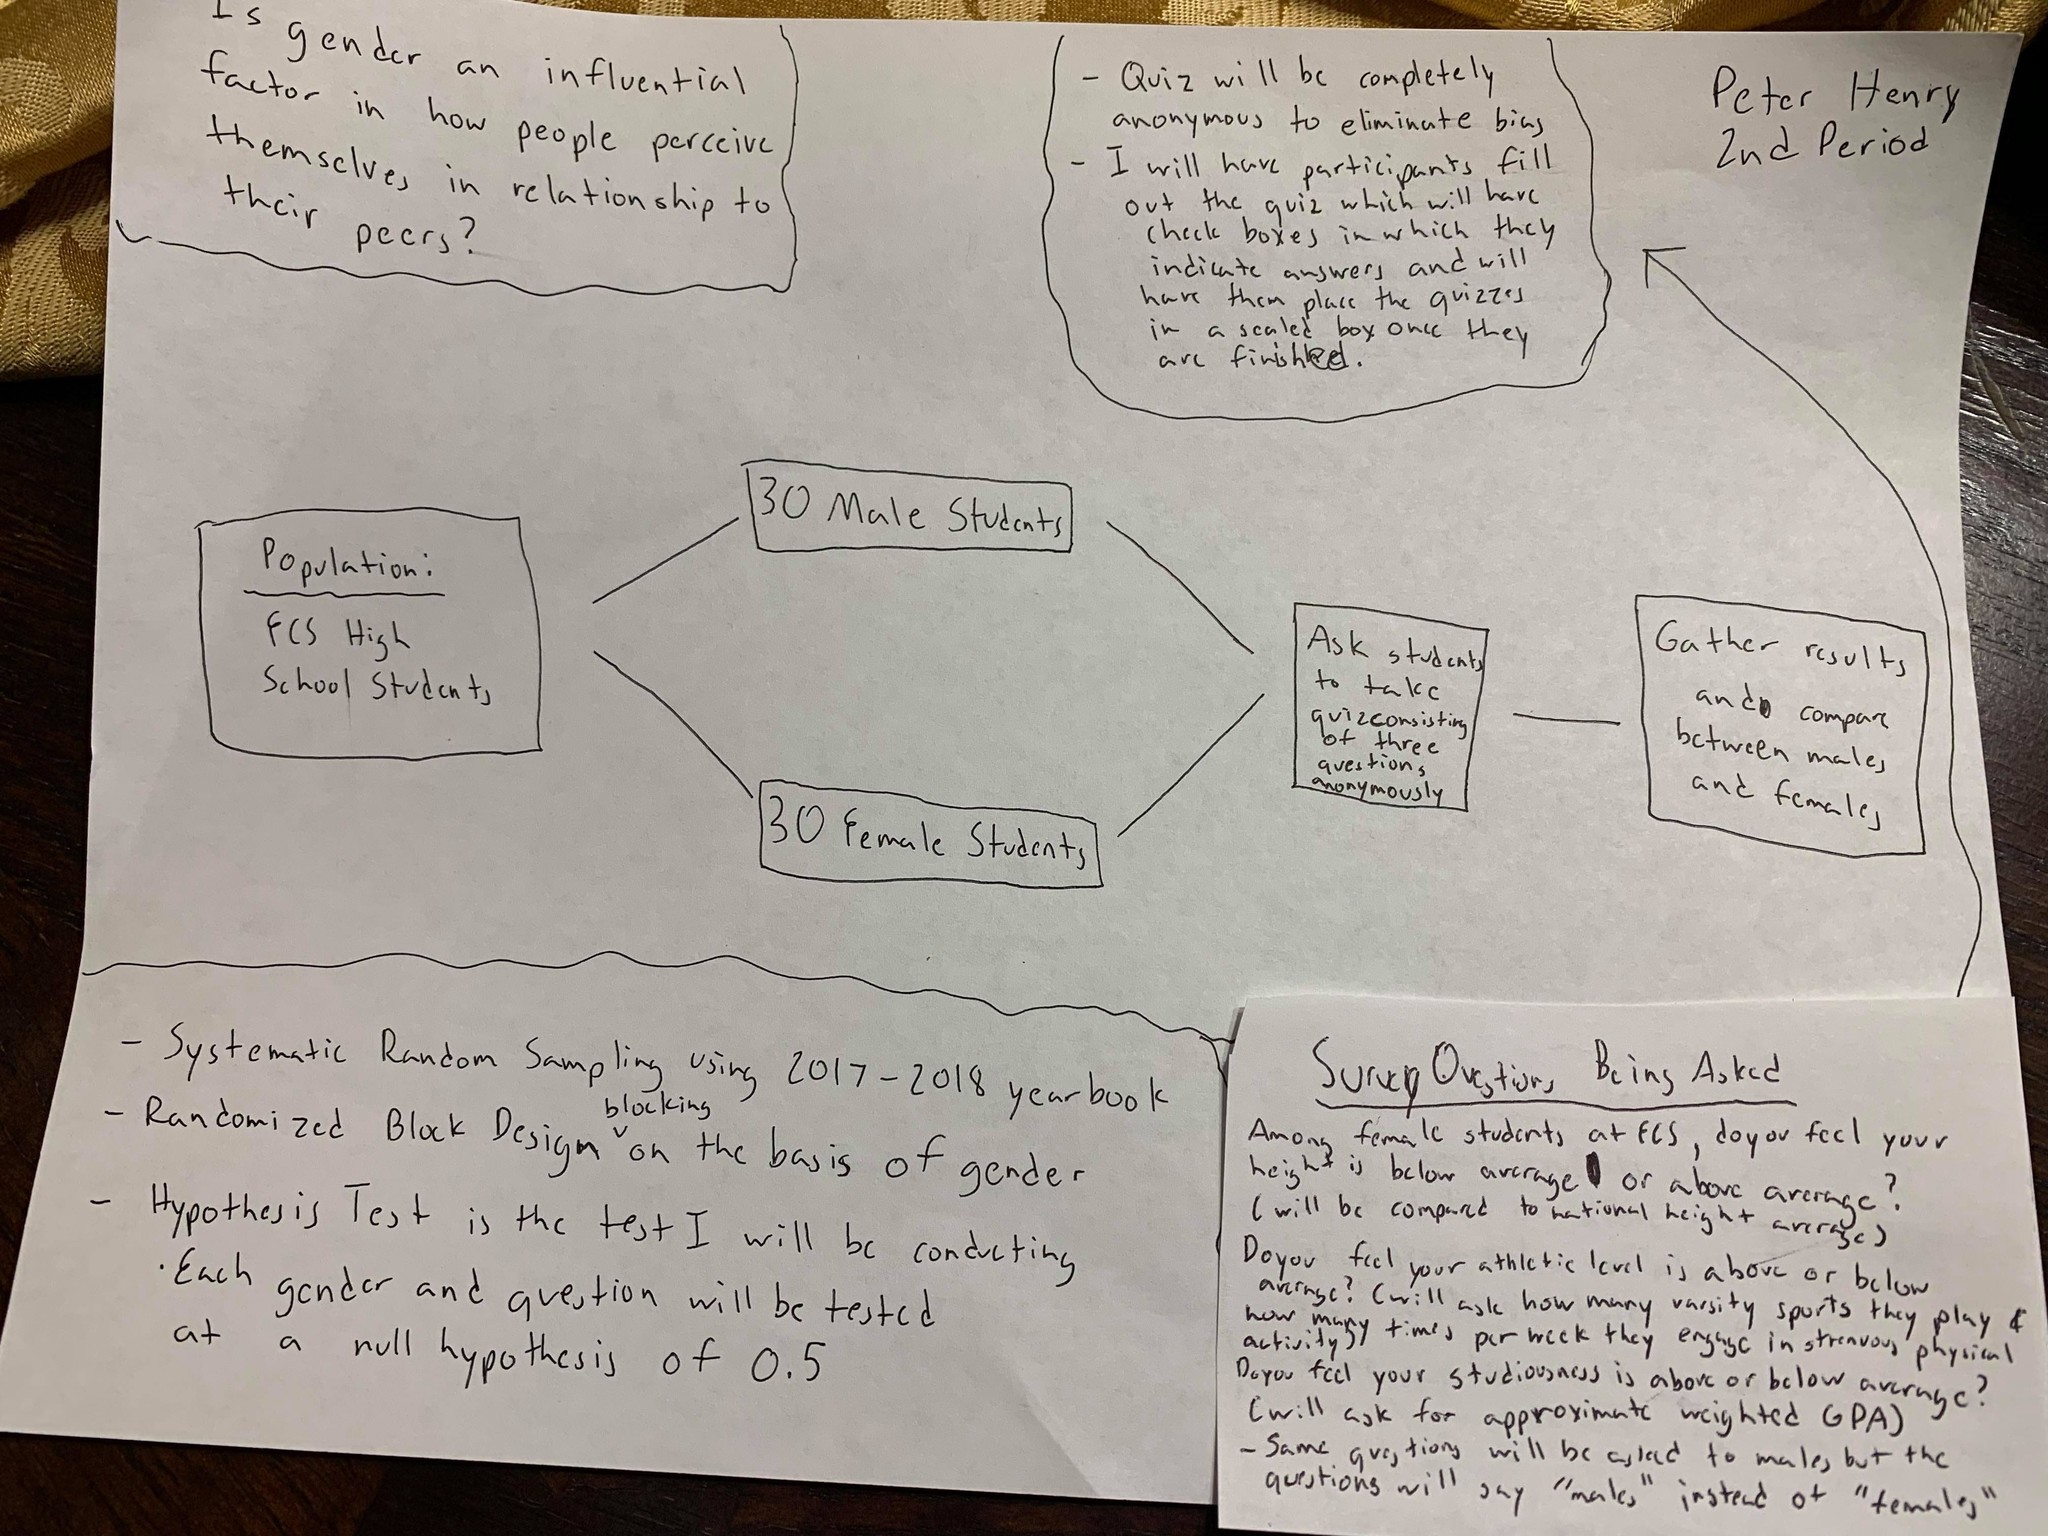 Is gender an influential
factor in how people perceive
themselves in relationship to
their peers?
- Quiz will be completely
anonymous to eliminate bias
- I will have participants fill
out the quiz which will have
check boxes in which they
indicate answers and will
have them place the quizzes
in a sealed box once they
are finished.
Peter Henry
2nd Period
Population:
FCS High
School Students
30 Male Students
30 Female Students
Ask students
to take
quiz consisting
of three
questions
anonymously
Gather results
and compare
between males
and females
- Systematic Random Sampling using 2017-2018 yearbook
- Randomized Block Design blocking on the basis of gender
- Hypothesis Test is the test I will be conducting
· Each gender and question will be tested
at a null hypothesis of 0.5
Survey Questions Being Asked
Among female students at FCS, do you feel your
height is below average or above average?
(will be compared to national height average)
Do you feel your athletic level is above or below
average? (will ask how many varsity sports they play &
how many times per week they engage in strenuous physical
activity)
Do you feel your studiousness is above or below average?
(will ask for approximate weighted GPA)
- Same questions will be asked to males but the
questions will say "males" instead of "females"